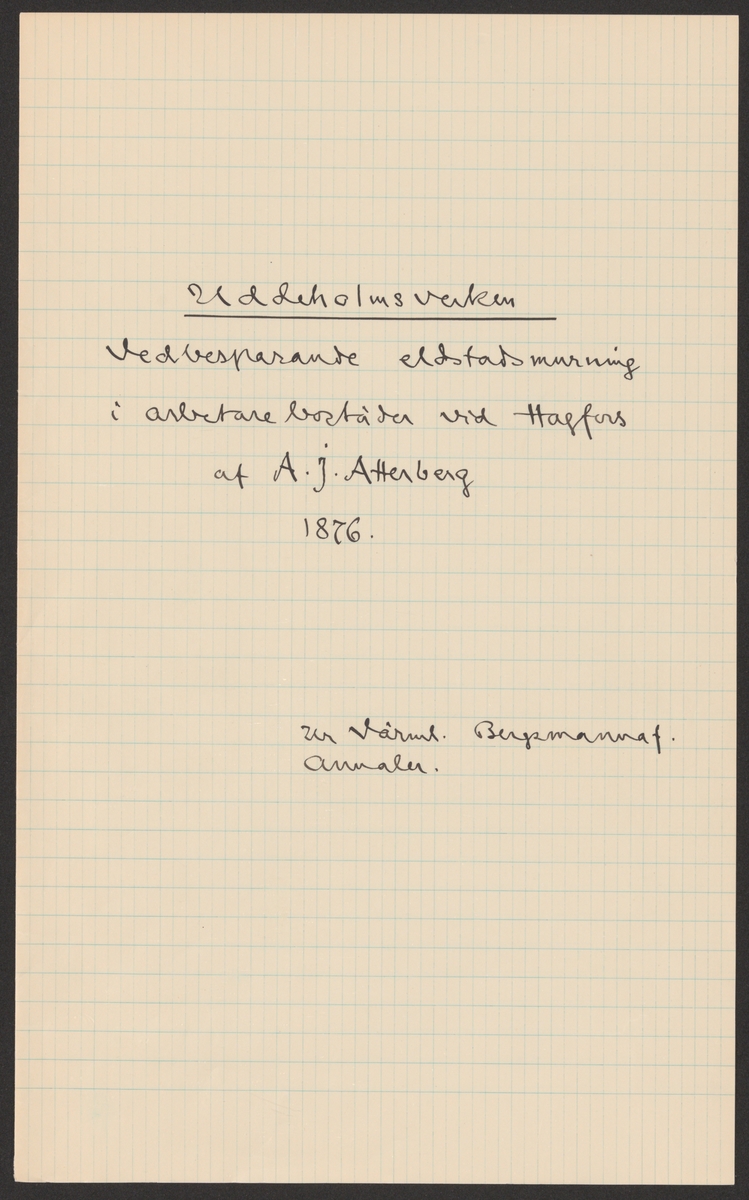 Uddeholmsverken
Vedbesparande eldstadsmurning
i arbetarebostäder vid Hagfors
af A. J. Atterberg
1876.
Ur Värml. Bergsmannaf.
Annaler.